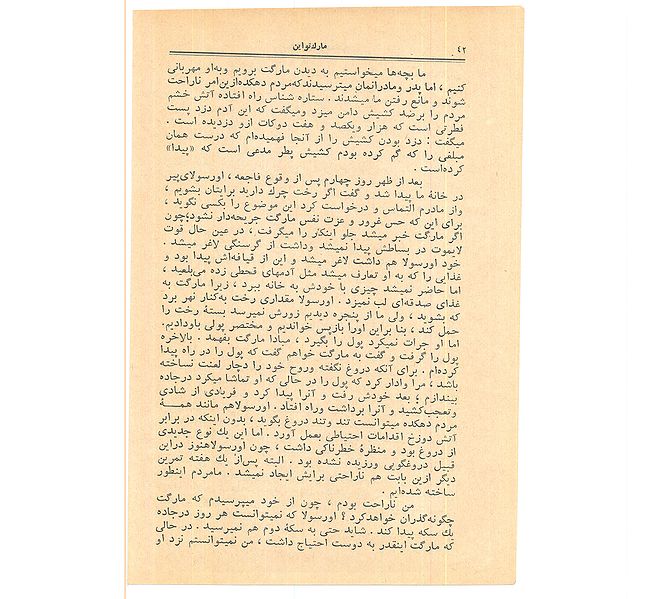 ۴۲
مارك‌تواین
ما بچه‌ها میخواستیم به دیدن مارگت برویم وبه‌او مهربانی
کنیم ، اما پدر ومادرانمان میترسیدندکه‌مردم دهکده‌ازاین‌امر ناراحت
شوند و مانع رفتن ما میشدند . ستاره شناس راه افتاده آتش خشم
مردم را برضد کشیش دامن میزد ومیگفت که این آدم دزد پست
فطرتی است که هزار ویکصد و هفت دوکات ازو دزدیده است .
میگفت : دزد بودن کشیش را از آنجا فهمیده‌ام که درست همان
مبلغی را که گم کرده بودم کشیش پطر مدعی است که «پیدا»
کرده‌است .
بعد از ظهر روز چهارم پس از وقوع فاجعه ، اورسولای‌پیر
در خانهٔ ما پیدا شد و گفت اگر رخت چرك دارید برایتان بشویم ،
واز مادرم التماس و درخواست کرد این موضوع را بکسی نگوید ،
برای این که حس غرور و عزت نفس مارگت جریحه‌دار نشود؛چون
اگر مارگت خبر میشد جلو اینکار را میگرفت ، در عین حال قوت
لایموت در بساطش پیدا نمیشد وداشت از گرسنگی لاغر میشد .
خود اورسولا هم داشت لاغر میشد و این از قیافه‌اش پیدا بود و
غذایی را که به او تعارف میشد مثل آدمهای قحطی زده می‌بلعید ،
اما حاضر نمیشد چیزی با خودش به خانه ببرد ، زیرا مارگت به
غذای صدقه‌ای لب نمیزد . اورسولا مقداری رخت به‌کنار نهر برد
که بشوید ، ولی ما از پنجره دیدیم زورش نمیرسد بستهٔ رخت را
حمل کند ، بنا براین اورا بازپس خواندیم و مختصر پولی باودادیم.
اما او جرات نمیکرد پول را بگیرد ، مبادا مارگت بفهمد . بالاخره
پول را گرفت و گفت به مارگت خواهم گفت که پول را در راه پیدا
کرده‌ام . برای آنکه دروغ نگفته وروح خود را دچار لعنت نساخته
باشد ، مرا وادار کرد که پول را در حالی که او تماشا میکرد درجاده
بیندازم ؛ بعد خودش رفت و آنرا پیدا کرد و فریادی از شادی
وتعجب‌کشید و آنرا برداشت وراه افتاد . اورسولاهم مانند همـــهٔ
مردم دهکده میتوانست تند وتند دروغ بگوید ، بدون اینکه در برابر
آتش دوزخ اقدامات احتیاطی بعمل آورد . اما این یك نوع جدیدی
از دروغ بود و منظرهٔ خطرناکی داشت ، چون اورسولاهنوز دراین
قبیل دروغگویی ورزیده نشده بود . البته پس‌از یك هفته تمرین
دیگر ازین بابت هم ناراحتی برایش ایجاد نمیشد . مامردم اینطور
ساخته شده‌ایم .
من ناراحت بودم ، چون از خود میپرسیدم که مارگت
چگونه‌گذران خواهدکرد ؟ اورسولا که نمیتوانست هر روز درجاده
یك سکه پیدا کند . شاید حتی به سکهٔ دوم هم نمیرسید . در حالی
که مارگت اینقدر به دوست احتیاج داشت ، من نمیتوانستم نزد او